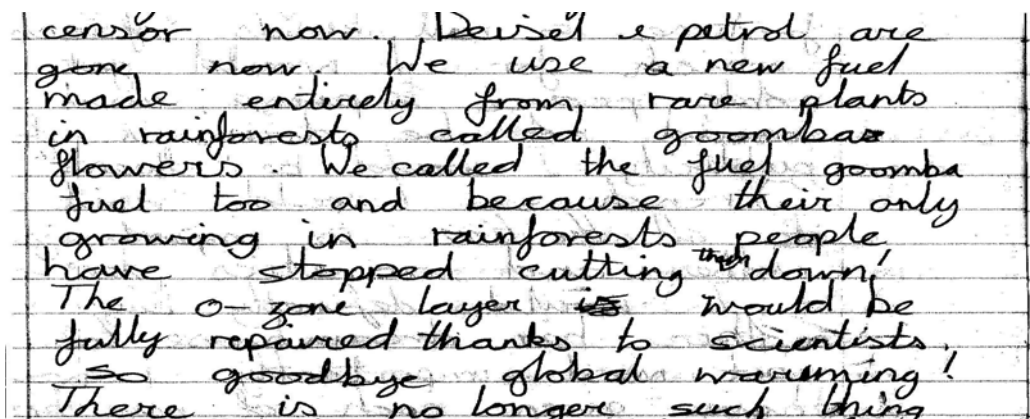 censor now. Deisel & petrol are
gone now. We use a new fuel
made entirely from rare plants
in rainforests called goombas
flowers. We called the fuel goomba
fuel too and because their only
growing in rainforests people
have stopped cutting them down!
The o-zone layer is would be
fully repaired thanks to scientists.
So goodbye global waruming!
There is no longer such thing